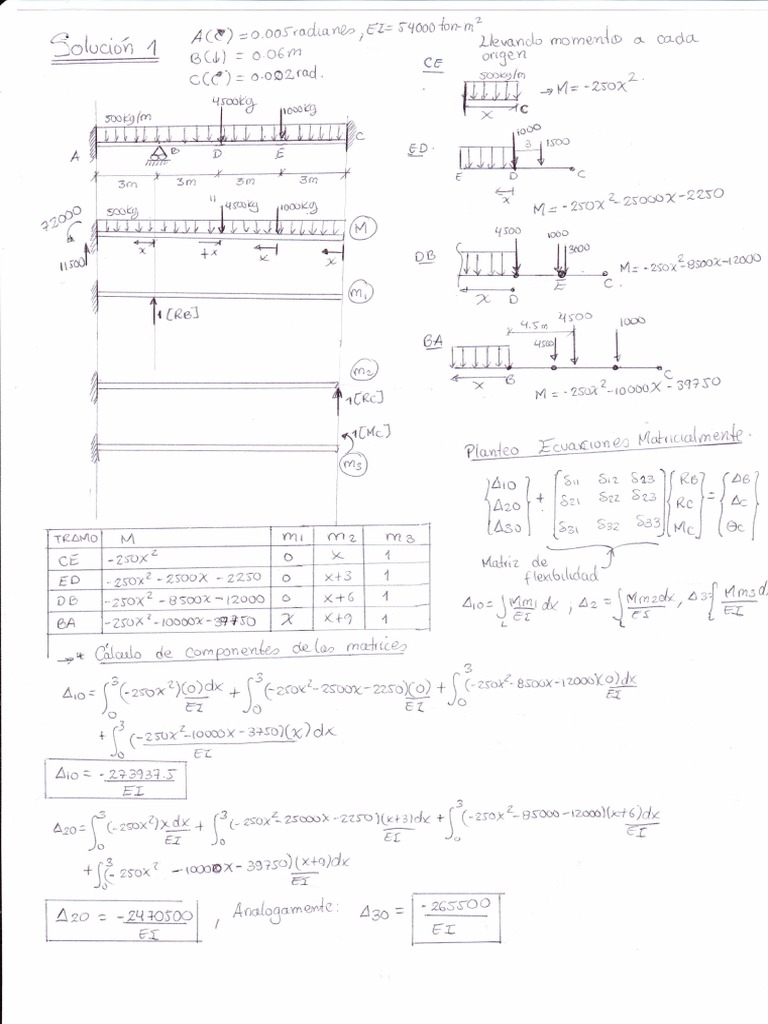 Solución 1
A(↻) = 0.005 radianes, EI = 54000 ton-m²
B(↓) = 0.06m
C(↻) = 0.002 rad.
Llevando momentos a cada
origen
CE
500kg/m
→ M = -250x².
x
C
500kg/m
4500kg
1000kg
A
B
D
E
C
3m
3m
3m
3m
ED.
1000
3
1500
E
D
C
x
M = -250x² - 25000x - 2250
72000
11500
500kg
4500kg
1000kg
M
x
+x
x
x
DB
4500
1000
3000
D
E
C.
x
M = -250x² - 8500x - 12000
m1
1[RB]
BA
4.5m
4500
4500
1000
B
C
x
M = -250x² - 10000x - 39750
m2
1[Rc]
1[Mc]
m3
Planteo Ecuaciones Matricialmente.
{Δ10 Δ20 Δ30} + [δ11 δ12 δ23
δ21 δ22 δ23
δ31 δ32 δ33] {RB Rc Mc} = {ΔB Δc Θc}
Matriz de
flexibilidad
Δ10 = ∫L Mm1/EI dx , Δ2 = ∫L Mm2dx/EI , Δ3 ∫L Mm3dx/EI
TRAMO M m1 m2 m3
CE -250x² 0 x 1
ED -250x² - 2500x - 2250 0 x+3 1
DB -250x² - 8500x - 12000 0 x+6 1
BA -250x² - 10000x - 39750 x x+9 1
→* Cálculo de componentes de las matrices
Δ10 = ∫₀³ (-250x²)(0)dx/EI + ∫₀³ (-250x² - 2500x - 2250)(0)/EI + ∫₀³ (-250x² - 8500x - 12000)(0)dx/EI
+ ∫₀³ (-250x² - 10000x - 3750)(x)dx/EI
Δ10 = -273937.5/EI
Δ20 = ∫₀³ (-250x²)x dx/EI + ∫₀³ (-250x² - 25000x - 2250)(x+3)dx/EI + ∫₀³ (-250x² - 85000 - 12000)(x+6)dx/EI
+ ∫₀³ (-250x² - 10000x - 39750)(x+9)dx/EI
Δ20 = -2470500/EI , Analogamente: Δ30 = -265500/EI